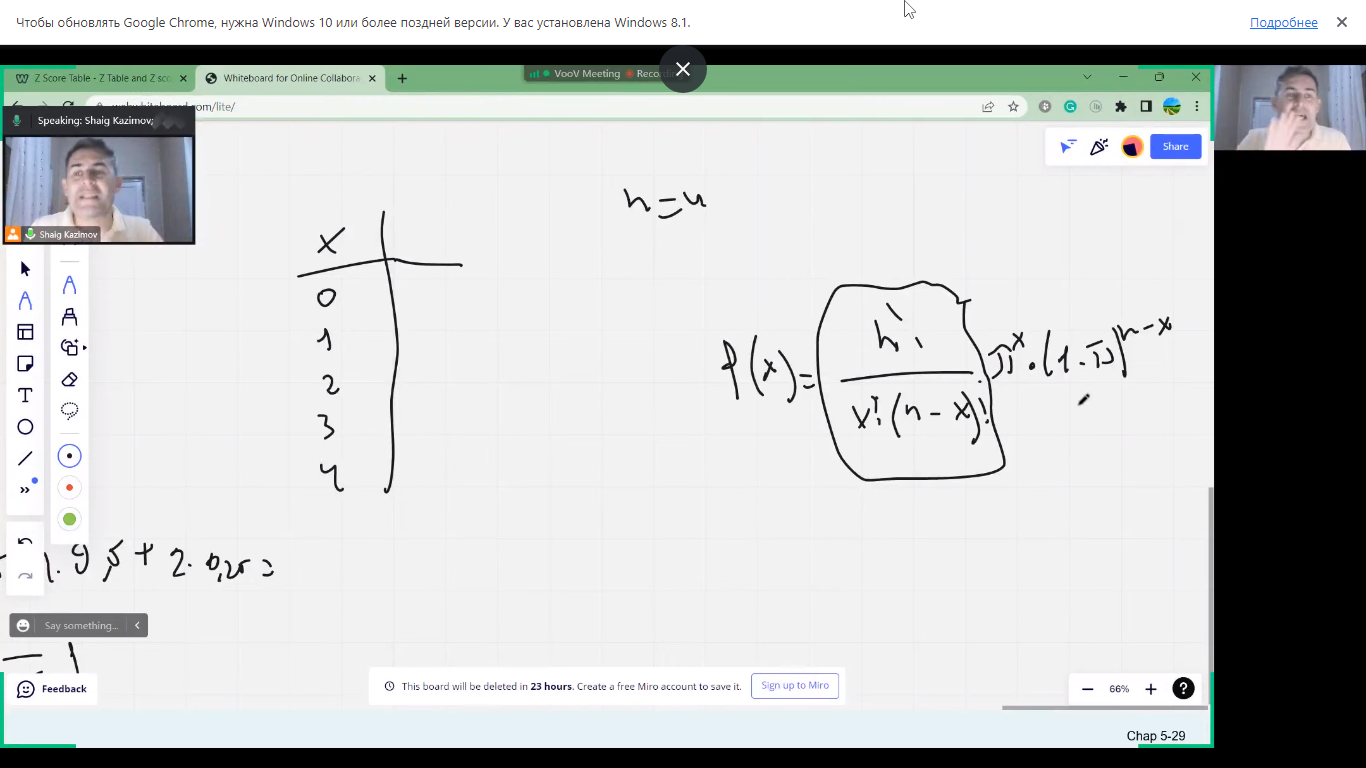 Чтобы обновлять Google Chrome, нужна Windows 10 или более поздней версии. У вас установлена Windows 8.1.
Подробнее
Z Score Table - Z Table and Z sco
Whiteboard for Online Collabora
VooV Meeting
Recor
/lite/
Speaking: Shaig Kazimov;
Shaig Kazimov
Share
n = 4
x
0
1
2
3
4
P(x) = n! / x!(n - x)! · π^x · (1 - π)^n - x
1. 0,5 + 2. 0,25 =
Say something...
Feedback
This board will be deleted in 23 hours. Create a free Miro account to save it.
Sign up to Miro
66%
Chap 5-29